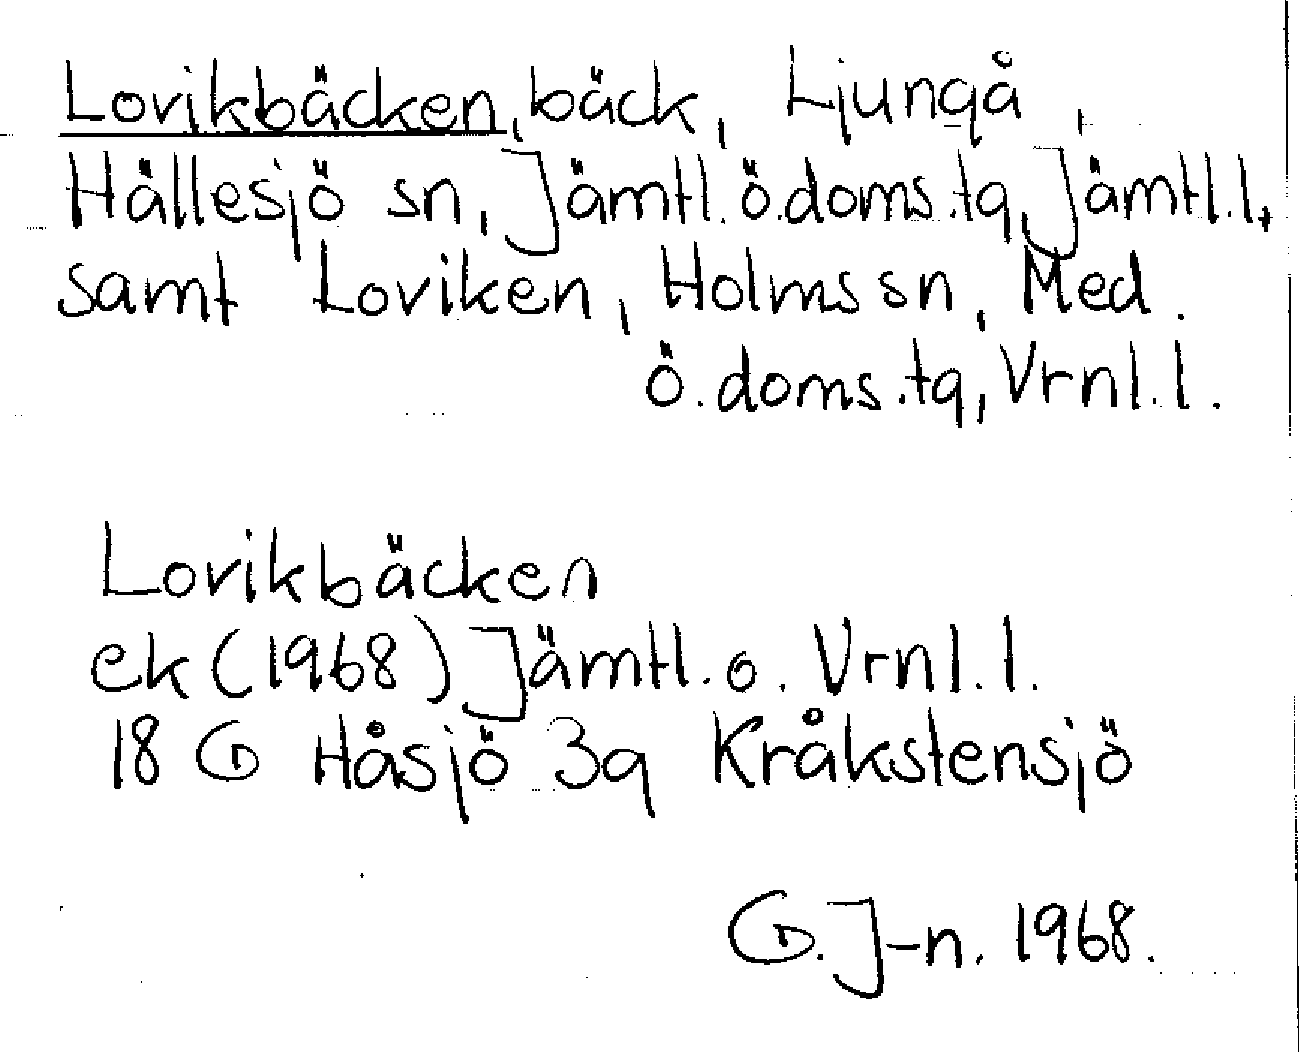 Lovikbäcken, bäck, Ljungå,
Hällesjö sn, Jämtl. ö.doms.tg, Jämtl.l,
samt Loviken, Holms sn, Med.
Ö.doms.tg, Vrnl.l.
Lovikbäcken
ek (1968) Jämtl. o. Vrnl.l.
18 G Håsjö 3g Kråkstensjö
G. J-n. 1968.